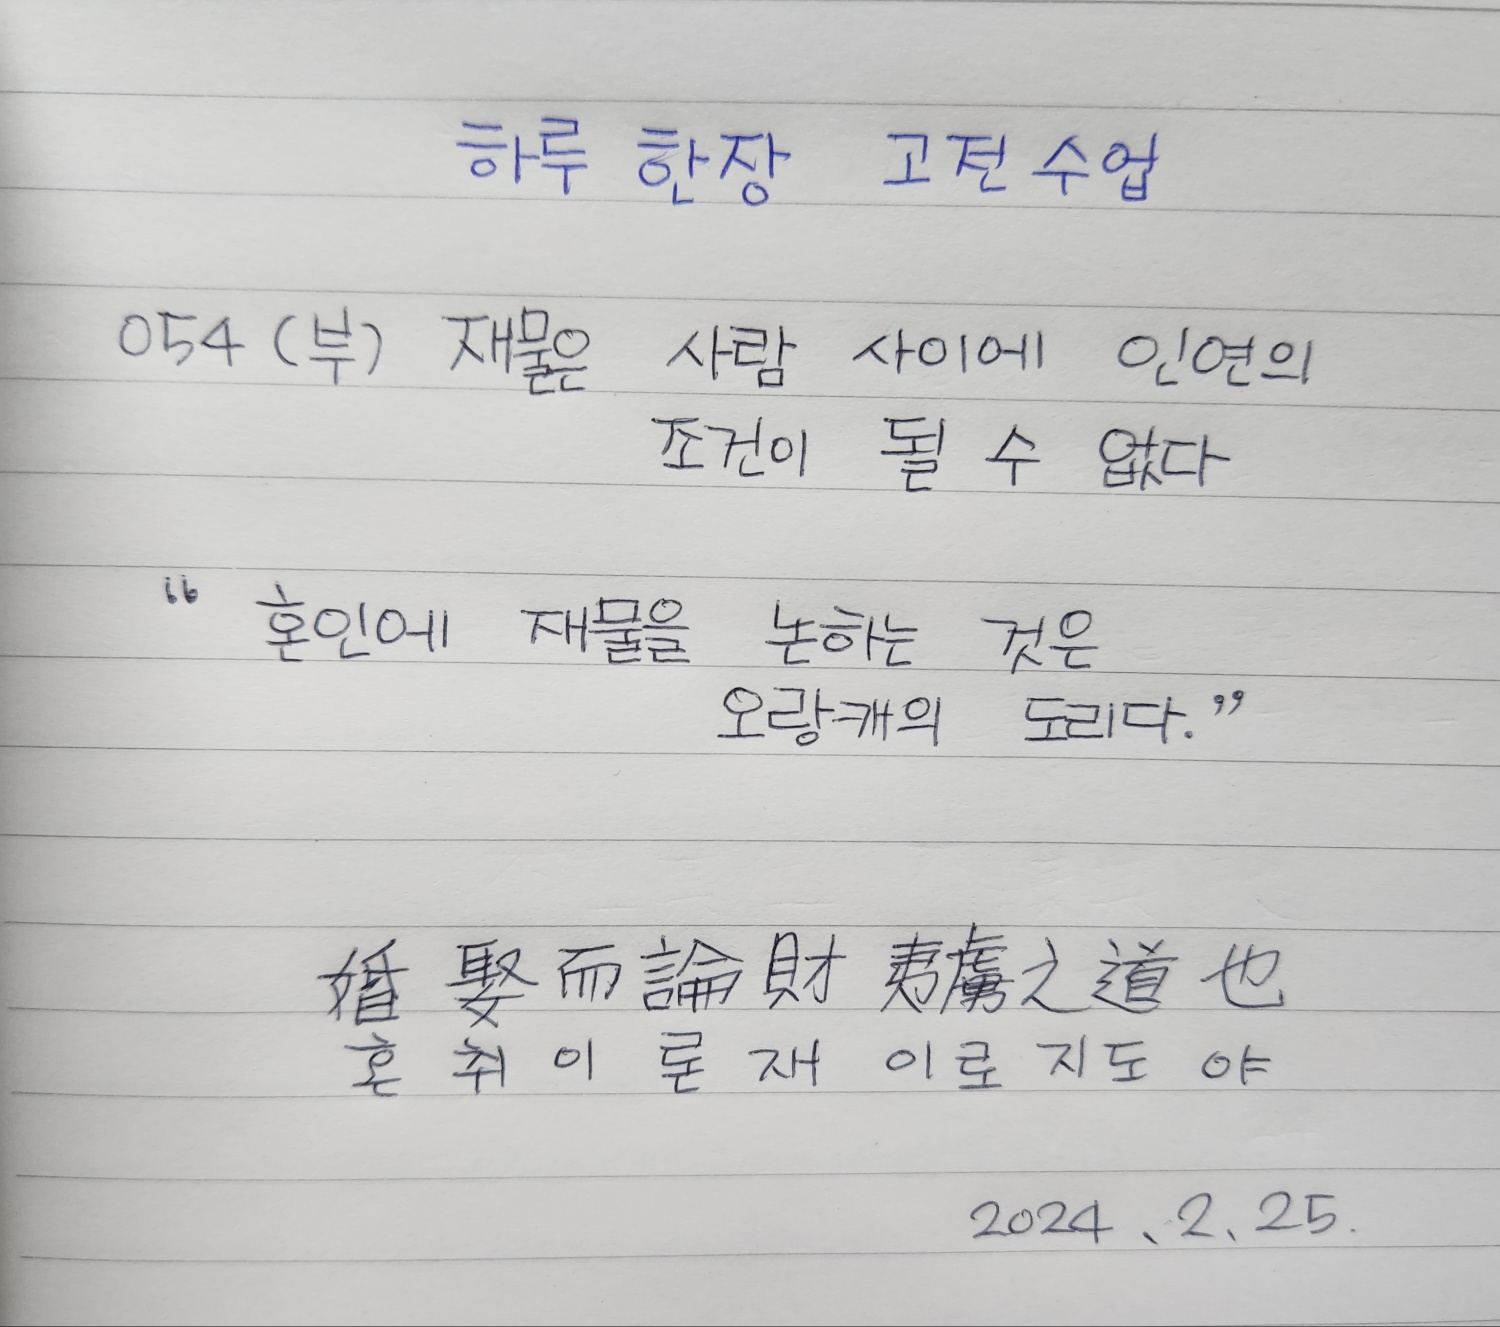 하루 한장 고전 수업
054 (부) 재물은 사람 사이에 인연의
조건이 될 수 없다
“ 혼인에 재물을 논하는 것은
오랑캐의 도리다.”
婚 娶 而 論 財 夷虜之道也
혼 취 이 론 재 이로지도 야
2024. 2. 25.